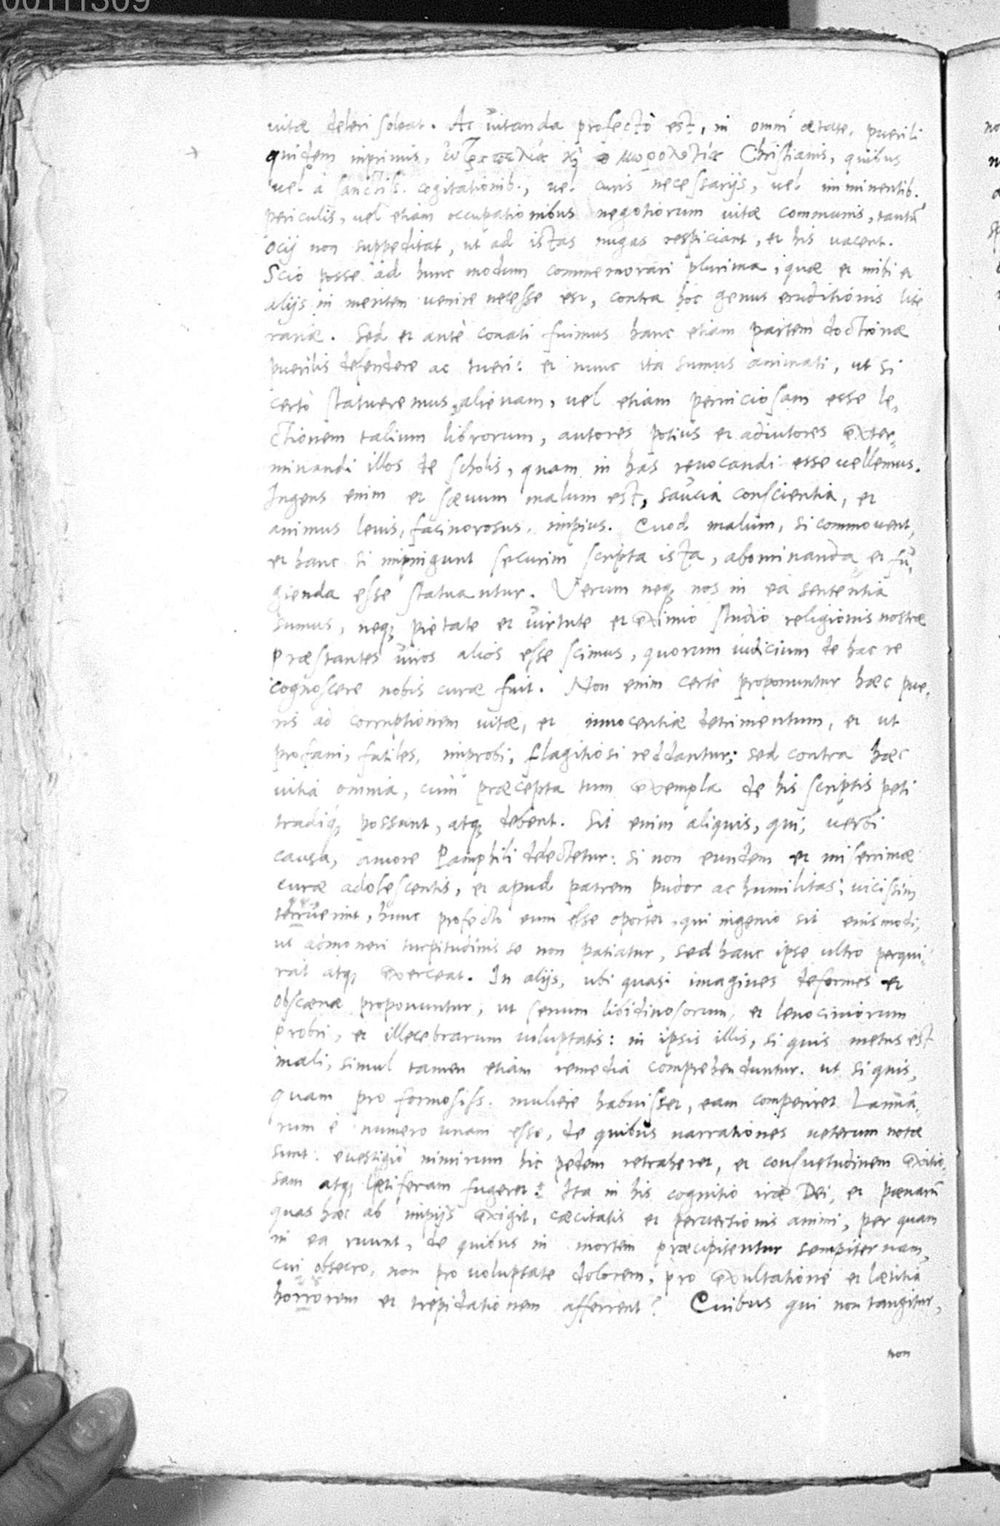 vitæ deleri soleat. Ac vitanda profecto est, in omni ætate, puerili
quidem inprimis, καὶ μωρολογία Christianis, quibus
vel a sanctiss. cogitationib., vel curis necessarijs, vel imminentib.
periculis, vel etiam occupationibus negotiorum vitæ communis, tantū
ocij non suppeditat, ut ad istas nugas respiciant, et his vacent.
Scio posse ad hunc modum commemorari plurima, quæ et mihi et
alijs in mentem venire necesse est, contra hoc genus eruditionis lite
rariæ. Sed et ante conati fuimus hanc etiam partem doctrinæ
puerilis defendere ac tueri: et nunc ita sumus animati, ut si
certo statueremus, alienam, vel etiam perniciosam esse le,
ctionem talium librorum, autores potius et adiutores exter,
minandi illos de scholis, quam in has revocandi esse vellemus.
Ingens enim et sævum malum est, saucia conscientia, et
animus levis, facinorosus, impius. Quod malum, si commovent,
et hanc si impingunt securim scripta ista, abominanda et fu,
gienda esse statuantur. Verum neq; nos in ea sententia
sumus, neq; pietate et virtute et eximio studio religionis nostræ
præstantes viros alios esse scimus, quorum iudicium de hac re
cognoscere nobis curæ fuit. Non enim certe proponuntur hæc pue,
ris ad corruptionem vitæ, et innocentiæ detrimentum, et ut
profani, futiles, improbi, flagitiosi reddantur; sed contra hæc
vitia omnia, cum præcepta tum exempla de his scriptis peti
tradiq; possunt, atq; debent. Sit enim aliquis, qui, verbi
causa, amore Pamphili delectetur: si non eundem et miserrimæ
curæ adolescentis, et apud patrem pudor ac humilitas, vicissim
terruerint, hunc profecto eum esse oportet, qui ingenio sit eiusmodi,
ut admoneri turpitudinis se non patiatur, sed hanc ipse ultro perqui,
rat atq; exerceat. In alijs, ubi quasi imagines deformes et
obscænæ proponuntur, ut senum libidinosorum, et lenociniorum
probri, et illecebrarum voluptatis: in ipsis illis, si quis metus est
mali, simul tamen etiam remedia comprehenduntur. ut si quis,
quam pro formosiss. muliere habuisset, eam comperiret Lamia,
rum e numero unam esse, de quibus narrationes veterum notæ
sunt: e vestigio nimirum hic pedem retraheret, et consuetudinem exitio,
sam atq; letiferam fugeret: Ita in his cognitio iræ Dei, et pænarū
quas hæc ab impijs exigit, cæcitatis et perversionis animi, per quam
in ea ruunt, de quibus in mortem præcipitentur sempiternam,
cui obsecro, non pro voluptate dolorem, pro exultatione et lætitia
horrorem et trepidationem afferrent? Quibus qui non tangitur,
non